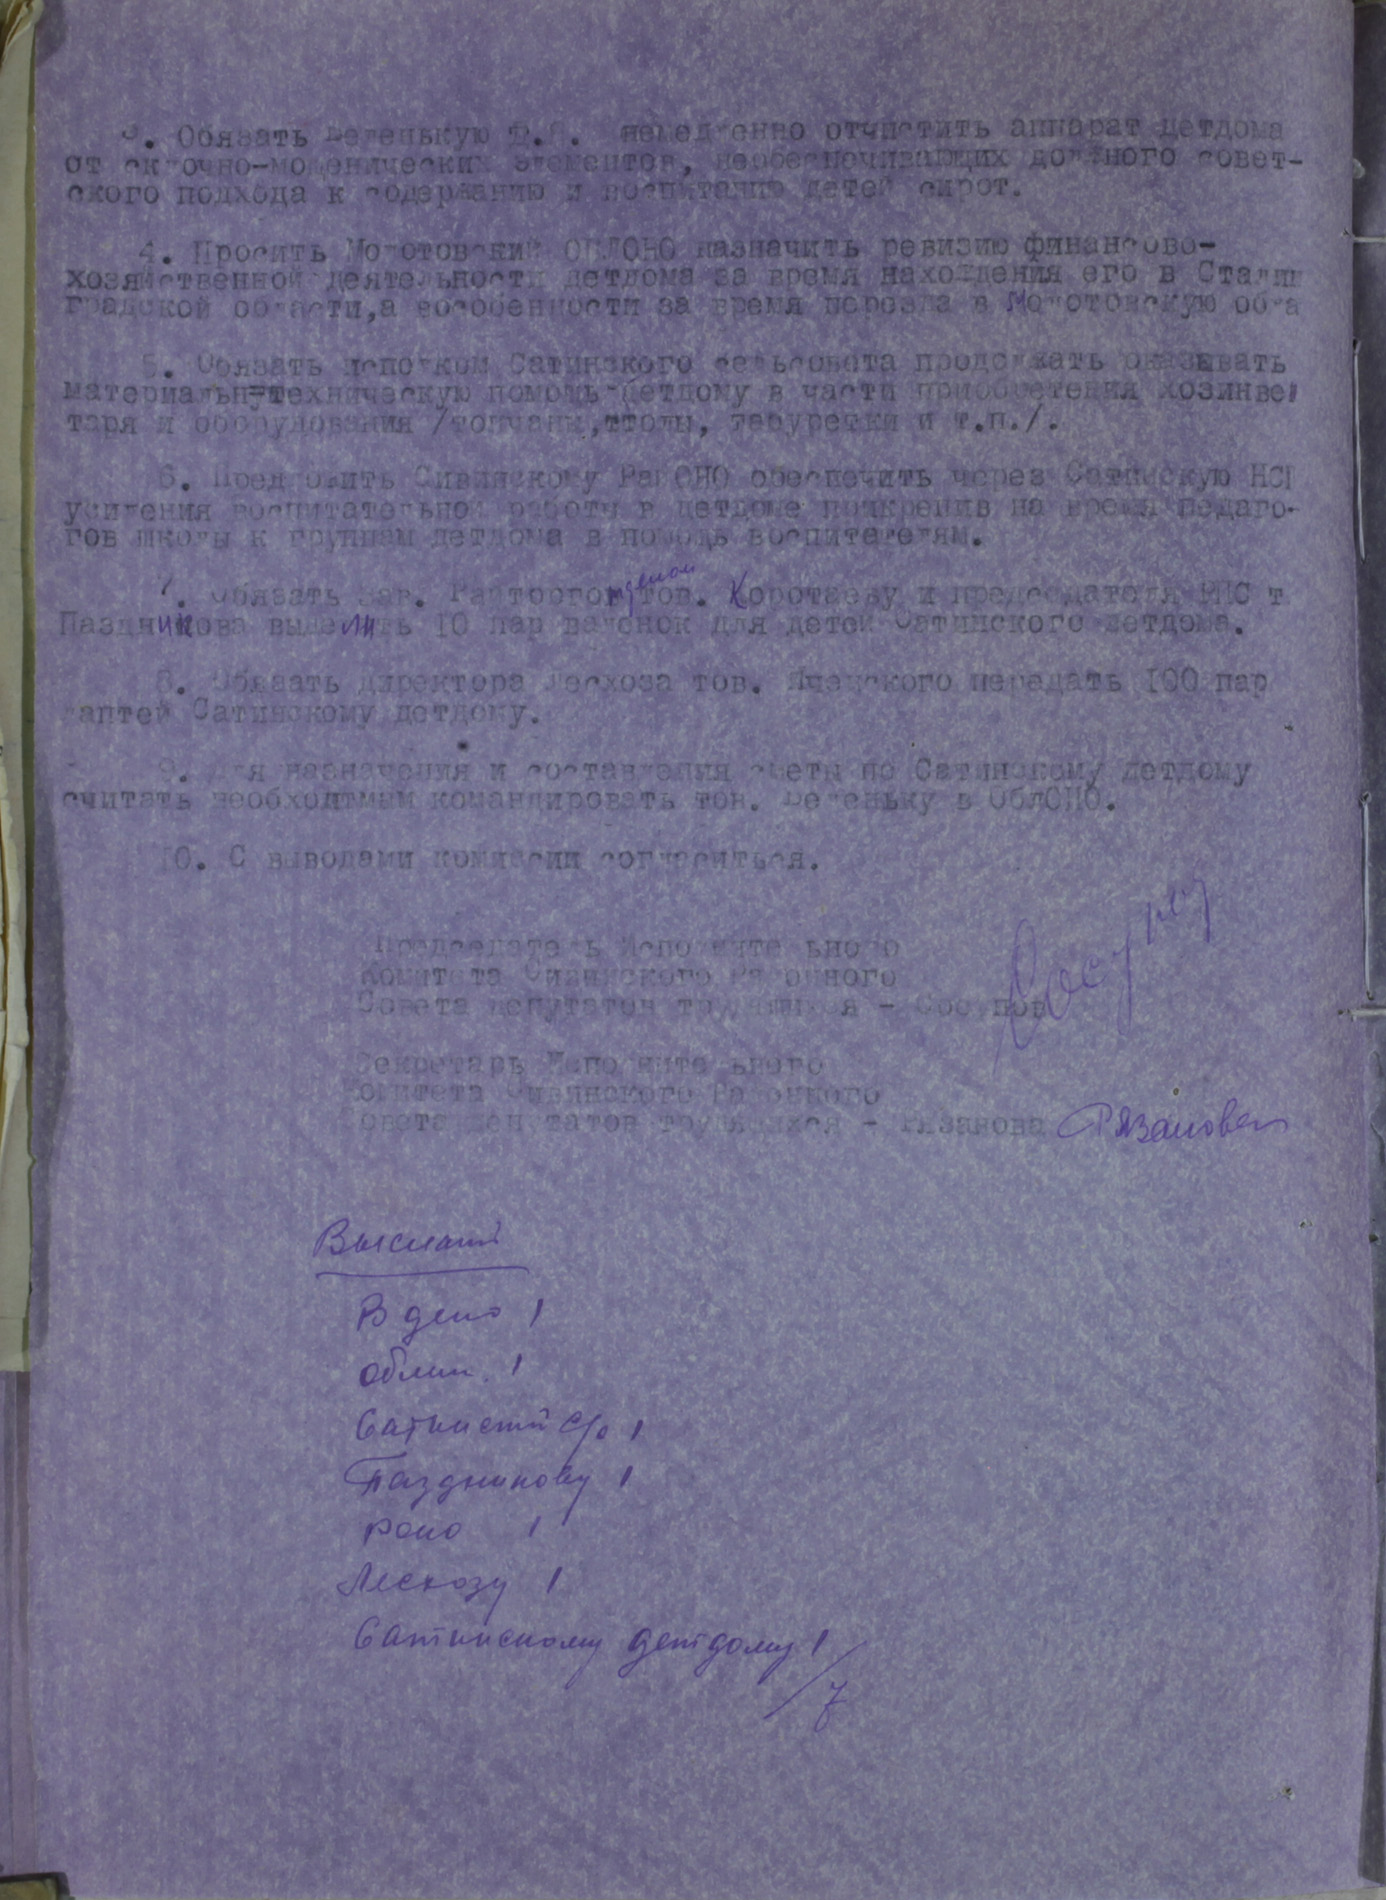 3. Обязать Беленькую немедленно отчистить аппарат детдома
от склочно-мошенических элементов, необеспечивающих должного совет-
ского подхода к содержанию и воспитанию детей сирот.
4. Просить Молотовский ОБЛОНО назначить ревизию финансово-
хозяйственной деятельности детдома за время нахождения его в Сталин
градской области, а вособенности за время переезда в Молотовскую обла
5. Обязать исполком Сатинского сельсовета продолжать оказывать
материально-техническую помощь детдому в части приобретения хозинвен
таря и оборудования /топчаны, столы, табуретки и т.п./.
6. Предложить Сивинскому РайОНО обеспечить через Сатинскую НСШ
усиления воспитательной работы в детдоме прикрепив на время педаго-
гов школы к группам детдома в помощь воспитателям.
7. Обязать Зав. Райторготделом тов. Коротаеву и председателя РПС т.
Паздникова выделить 10 пар валенок для детей Сатинского детдома.
8. Обязать директора лесхоза тов. передать 100 пар
лаптей Сатинскому детдому.
9. Для назначения и составления сметы по Сатинскому детдому
считать необходимым командировать тов. Беленьку в ОблОНО.
10. С выводами комиссии согласиться.
Председатель Исполнительного
Комитета Сивинского Районного
Совета депутатов трудящихся - Сосунов
Сосунов
Секретарь Исполнительного
Комитета Сивинского Районного
Совета депутатов трудящихся - Рязанова Рязанова
Выслать
В дело 1
Облис. 1
Сатинский с/с 1
Паздникову 1
Роно 1
Лесхозу 1
Сатинскому детдому 1
/7